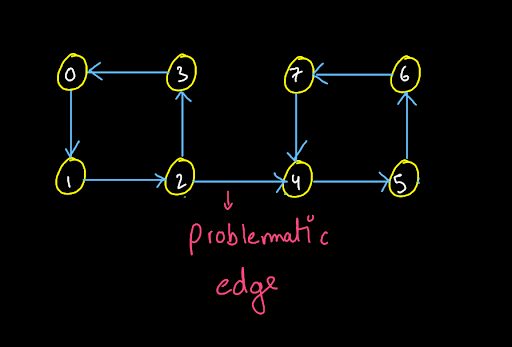 0 3 7 6
1 2 4 5
problematic
edge